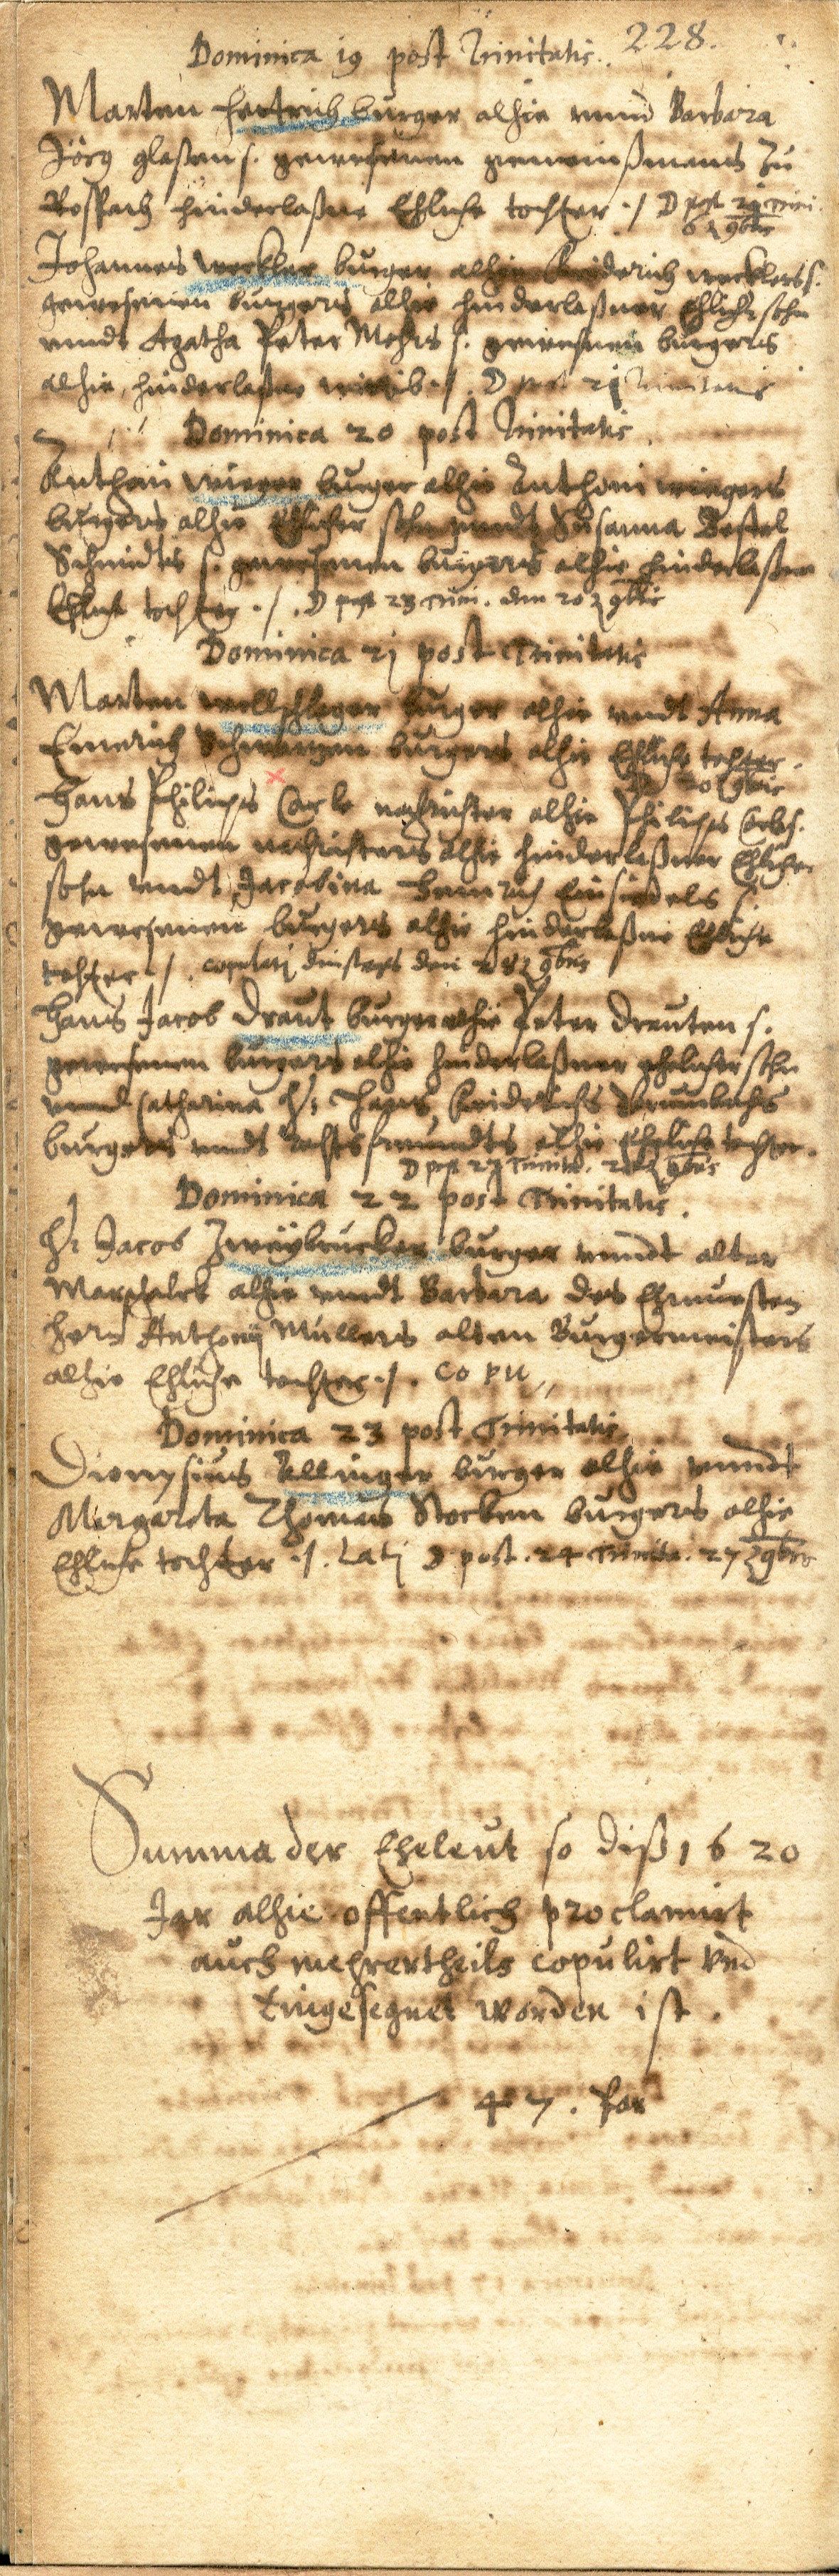 228.
Dominica 19 post Trinitatis.
Marten burger alhie unnd Barbara
Jörg glaßen s. gewesenen gemeinßmans zu
Rospach hinderlaßne Ehliche tochter ./ D post 21 Trini.
6 9bris
Johannes weckler burger alhie Friderich wecklers s.
gewesenen burgers alhie hinderlaßner Ehlicher sohn
unndt Agatha Peter Mohrs s. gewesenen burgers
alhie hinderlaßne wittib ./ D post 21 Trinitatis
Dominica 20 post Trinitatis.
Anthoni burger alhie Anthoni
burgers alhie Ehlicher sohn unndt Susanna
Schmidts s. gewesenen burgers alhie hinderlaßne
Ehliche tochter ./. D post 23 Trini. den 20 9bris
Dominica 21 post Trinitatis
Marten wollschleger burger alhie undt Anna
Emerich burgers alhie Ehliche tochter.
20 9bris
Hans Philips Carle nachrichter alhie Philips Carles s.
gewesenen nachrichters alhie hinderlaßner Ehlicher
sohn undt Jacobina Heinrich Einsidels s.
gewesenen burgers alhie hinderlaßne Ehliche
tochter ./. copulati dinstags den 28 9bris
Hans Jacob Draut burger alhie Peter Drauten s.
gewesenen burgers alhie hinderlaßner ehelicher sohn
unnd Catharina H: Hans Friderichs
burgers undt alhie eheliche tochter.
D post 23 Trinitat. 9bris
Dominica 22 post Trinitatis.
H: Jacob Zweybrucker burger unndt alter
Marschalck alhie unndt Barbara des Ehrnvesten
hern Anthonij Müllers alten Burgermeisters
alhie Ehliche tochter ./. Copu
Dominica 23 post Trinitatis.
Dionysius Ullinger burger alhie unndt
Margareta Thomas Stocken burgers alhie
Ehliche tochter ./. Lati D post. 24 Trinita. 27 9bris
Summa der Eheleut so diß 1620
Jar alhie offentlich proclamirt
auch mehrertheils copulirt vnd
Eingesegnet worden ist.
47. Par